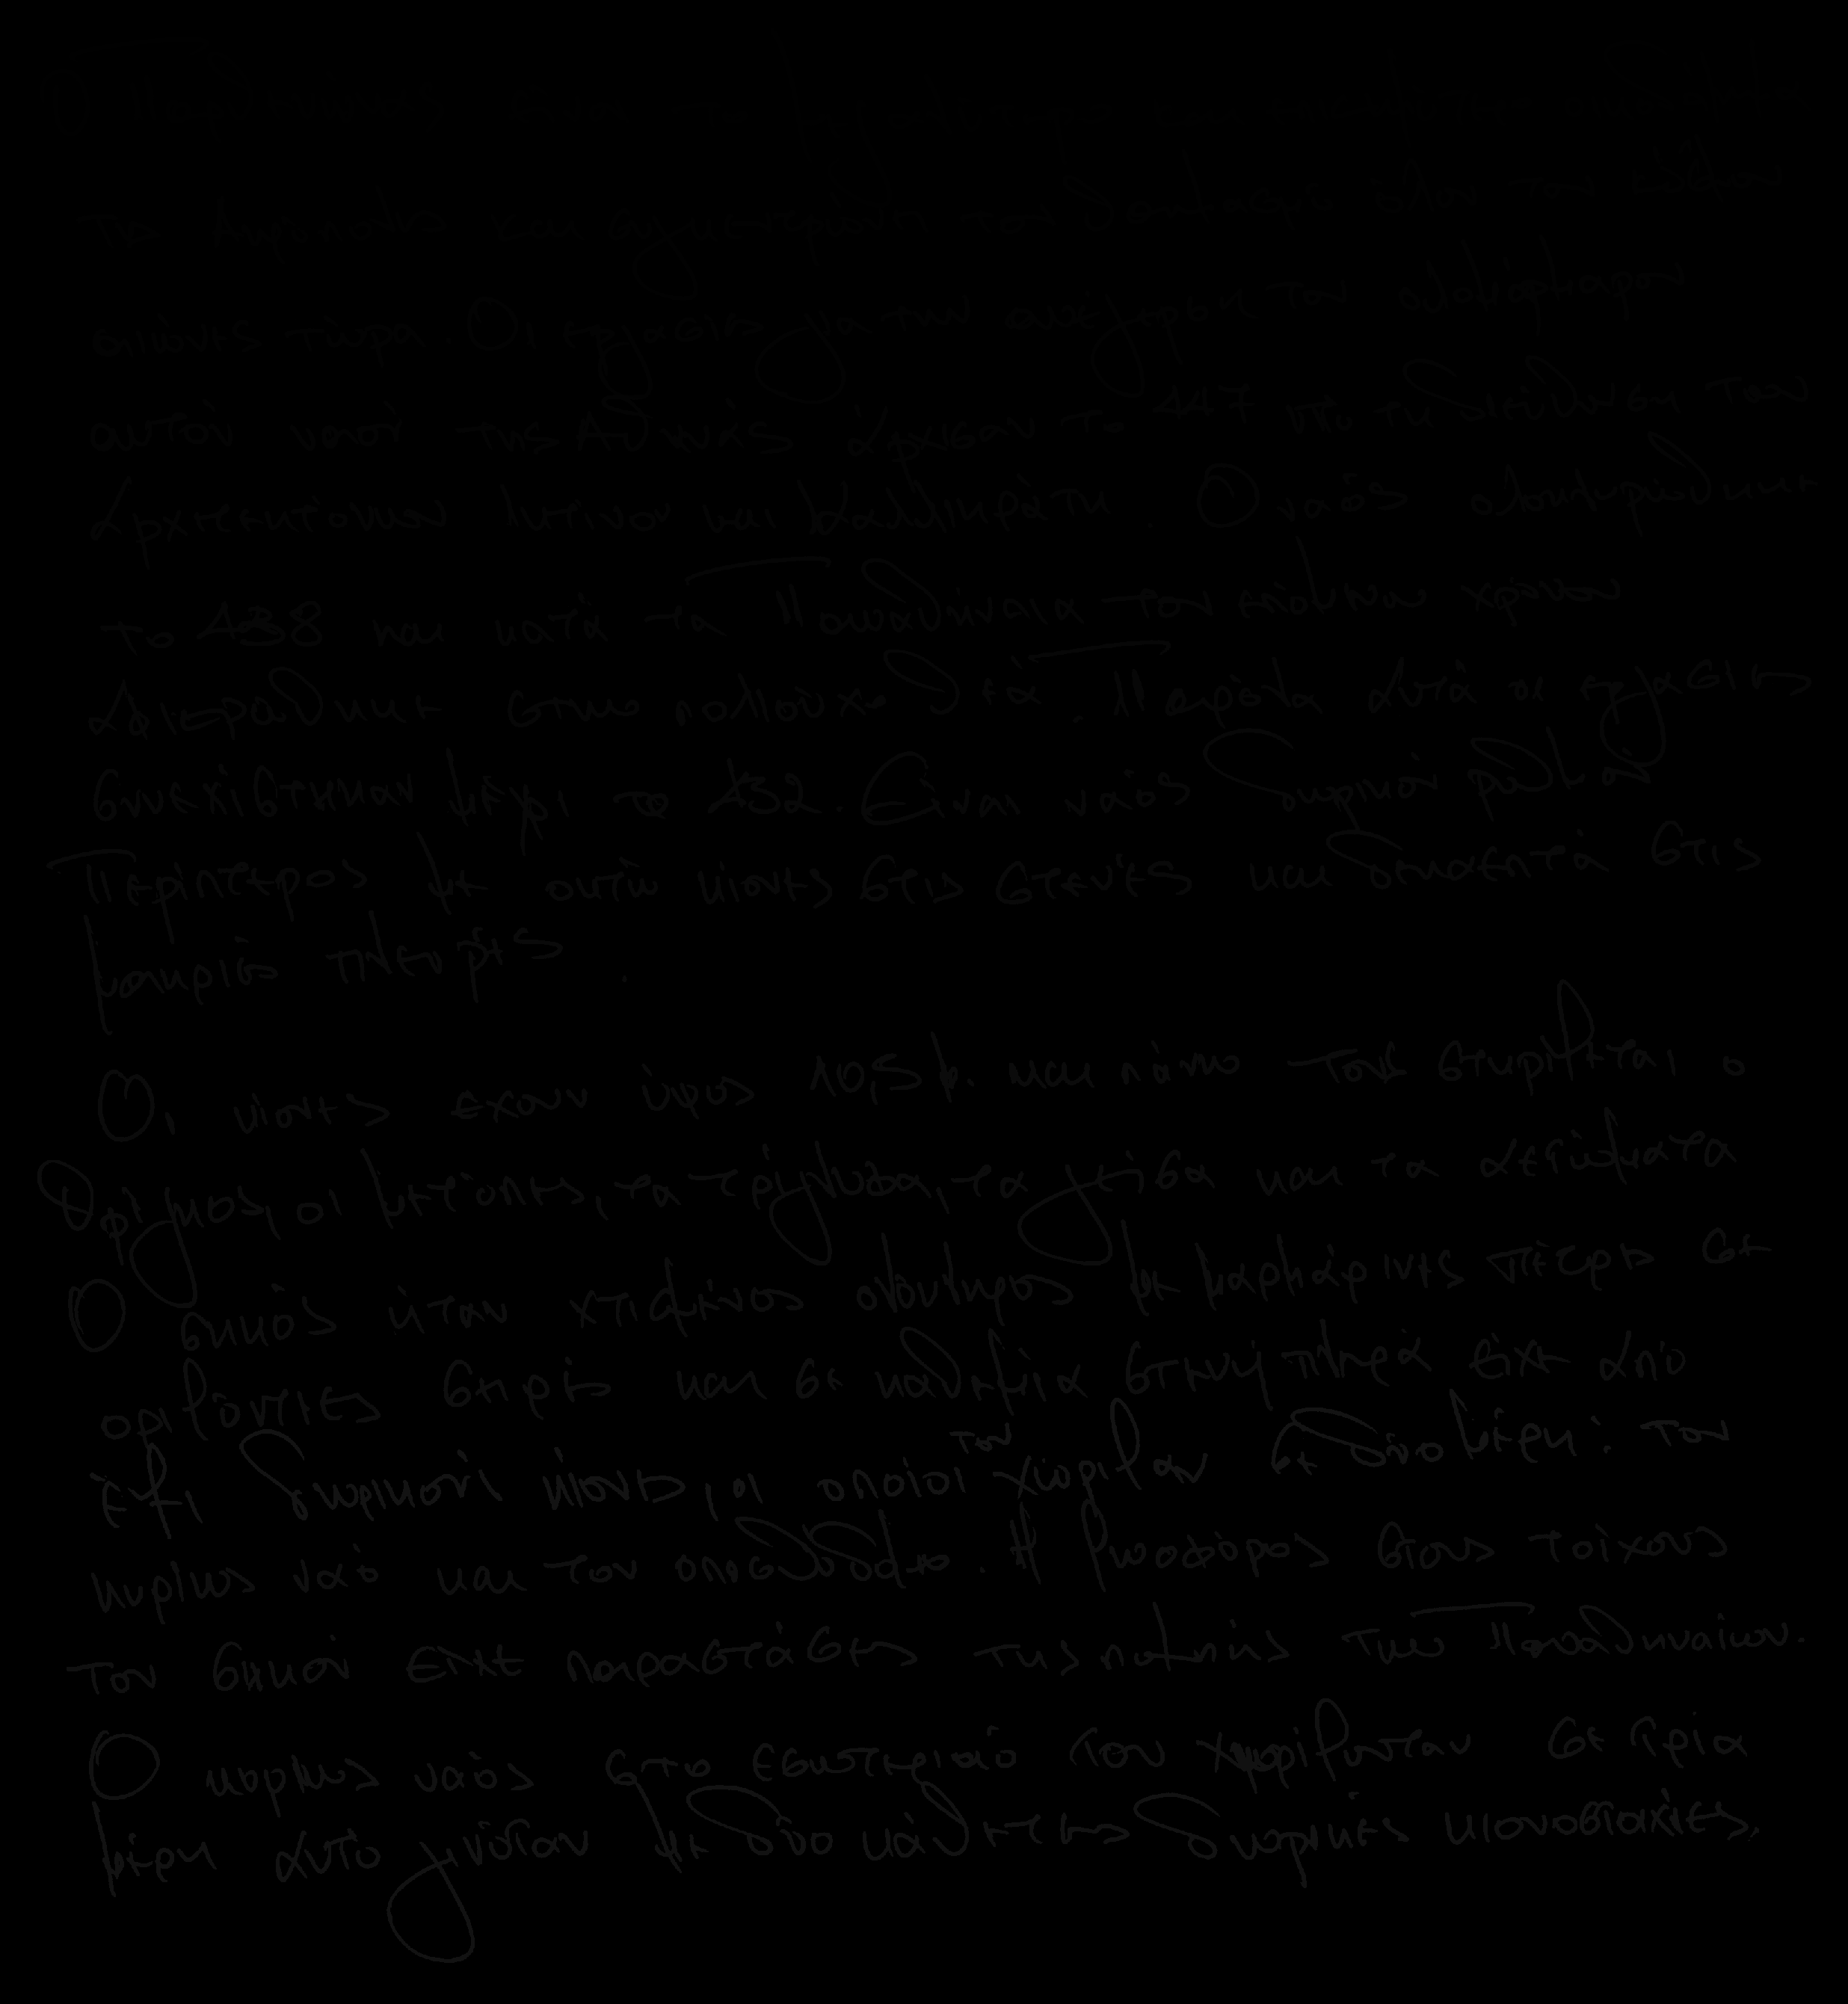 Ο Παρθενώνας
της Ακρόπολης και συγκεντρώνει τον θαυμασμό όλου του κόσμου
αιώνες τώρα. Οι εργασίες για την ανέγερση του ολομάρμαρου
αυτού ναού της Αθηνάς άρχισαν το 447 υπό τη διεύθυνση των
αρχιτεκτόνων Ικτίνου και Καλλικράτη. Ο ναός ολοκληρώθηκε
το 438 και κατά τα Παναθήναια του επόμενου χρόνου
αφιερώθηκε στην πολιούχο θεά. Παρόλα αυτά οι εργασίες
συνεχίστηκαν μέχρι το 432. Είναι ναός δωρικού ρυθμού
Περίπτερος με οκτώ κίονες στις στενές και δεκαεπτά στις
μακριές πλευρές.
Οι κίονες έχουν ύψος 10,5 μ. και πάνω τους στηρίζεται ο
θριγκός, οι μετόπες, τα τρίγλυφα, τα γείσα και τα αετώματα
Ο σηκός ήταν χτισμένος ολόκληρος με μαρμάρινες πέτρες σε
οριζόντιες σειρές και σε κάθε μία στενή πλευρά είχε από
έξι δωρικούς κίονες, οι οποίοι τον χώριζαν σε δύο μέρη: τον
κυρίως ναό και τον οπισθόδομο. Η ζωοφόρος στους τοίχους
του σηκού είχε παραστάσεις της πομπής των Παναθηναίων.
Ο κυρίως ναός στο εσωτερικό του χωριζόταν σε τρία
μέρη αυτό γινόταν με δύο κάθετες δωρικές κιονοστοιχίες.